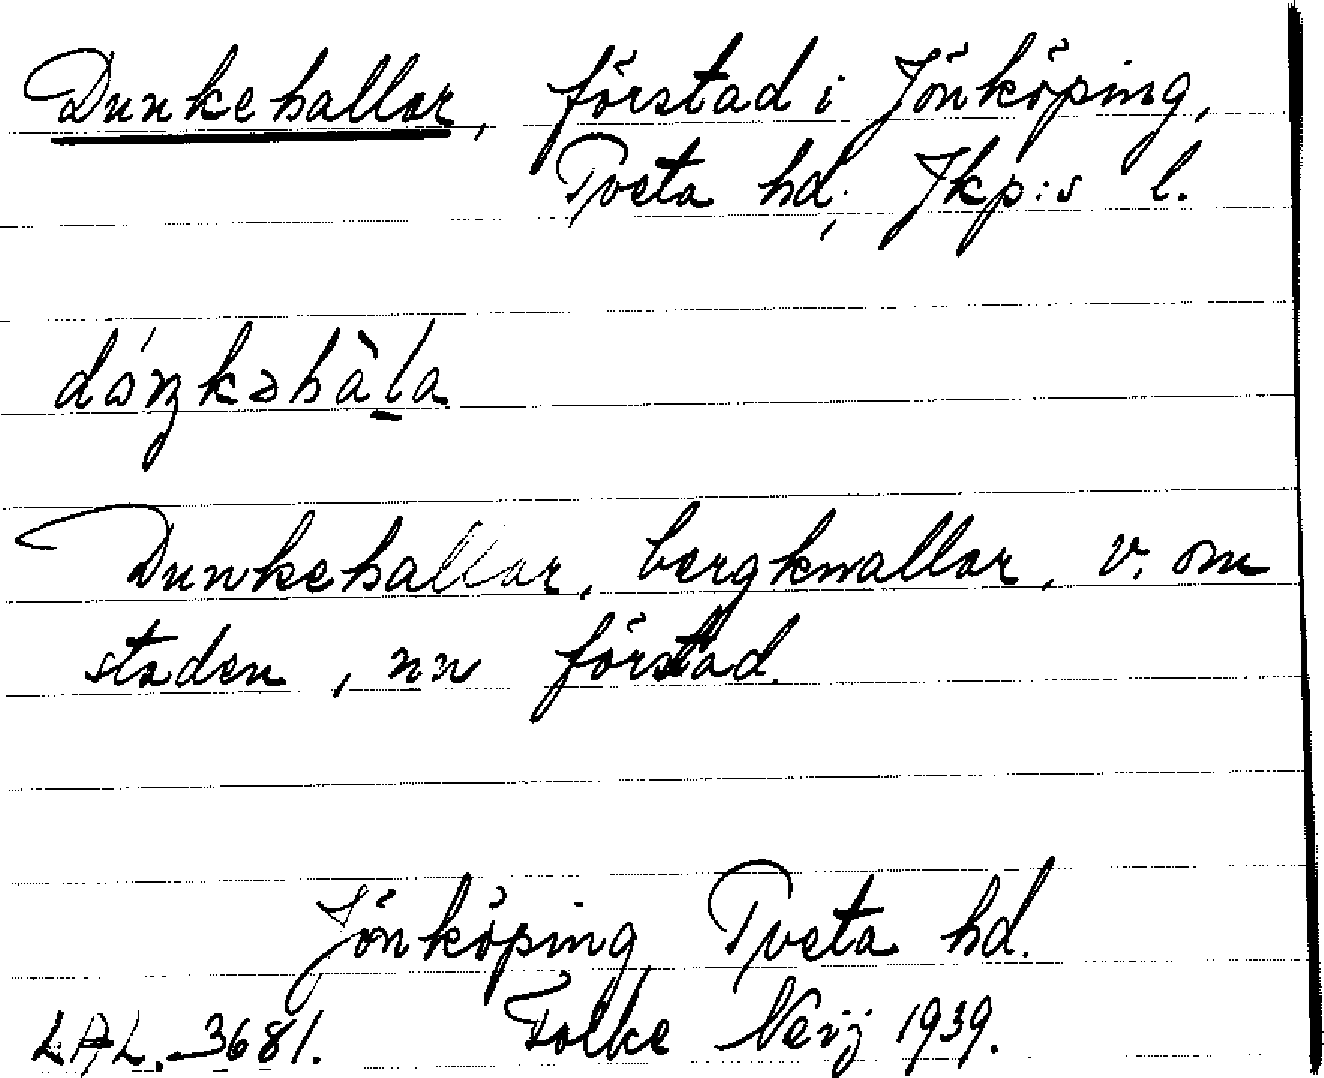 Dunkehallar, förstad i Jönköping,
Tveta hd; Jkp:s l.
dóŋkəhàla
Dunkehallar, bergknallar, v. om
staden, nu förstad.
Jönköping Tveta hd.
LAL. 3681. Folke Neij 1939.